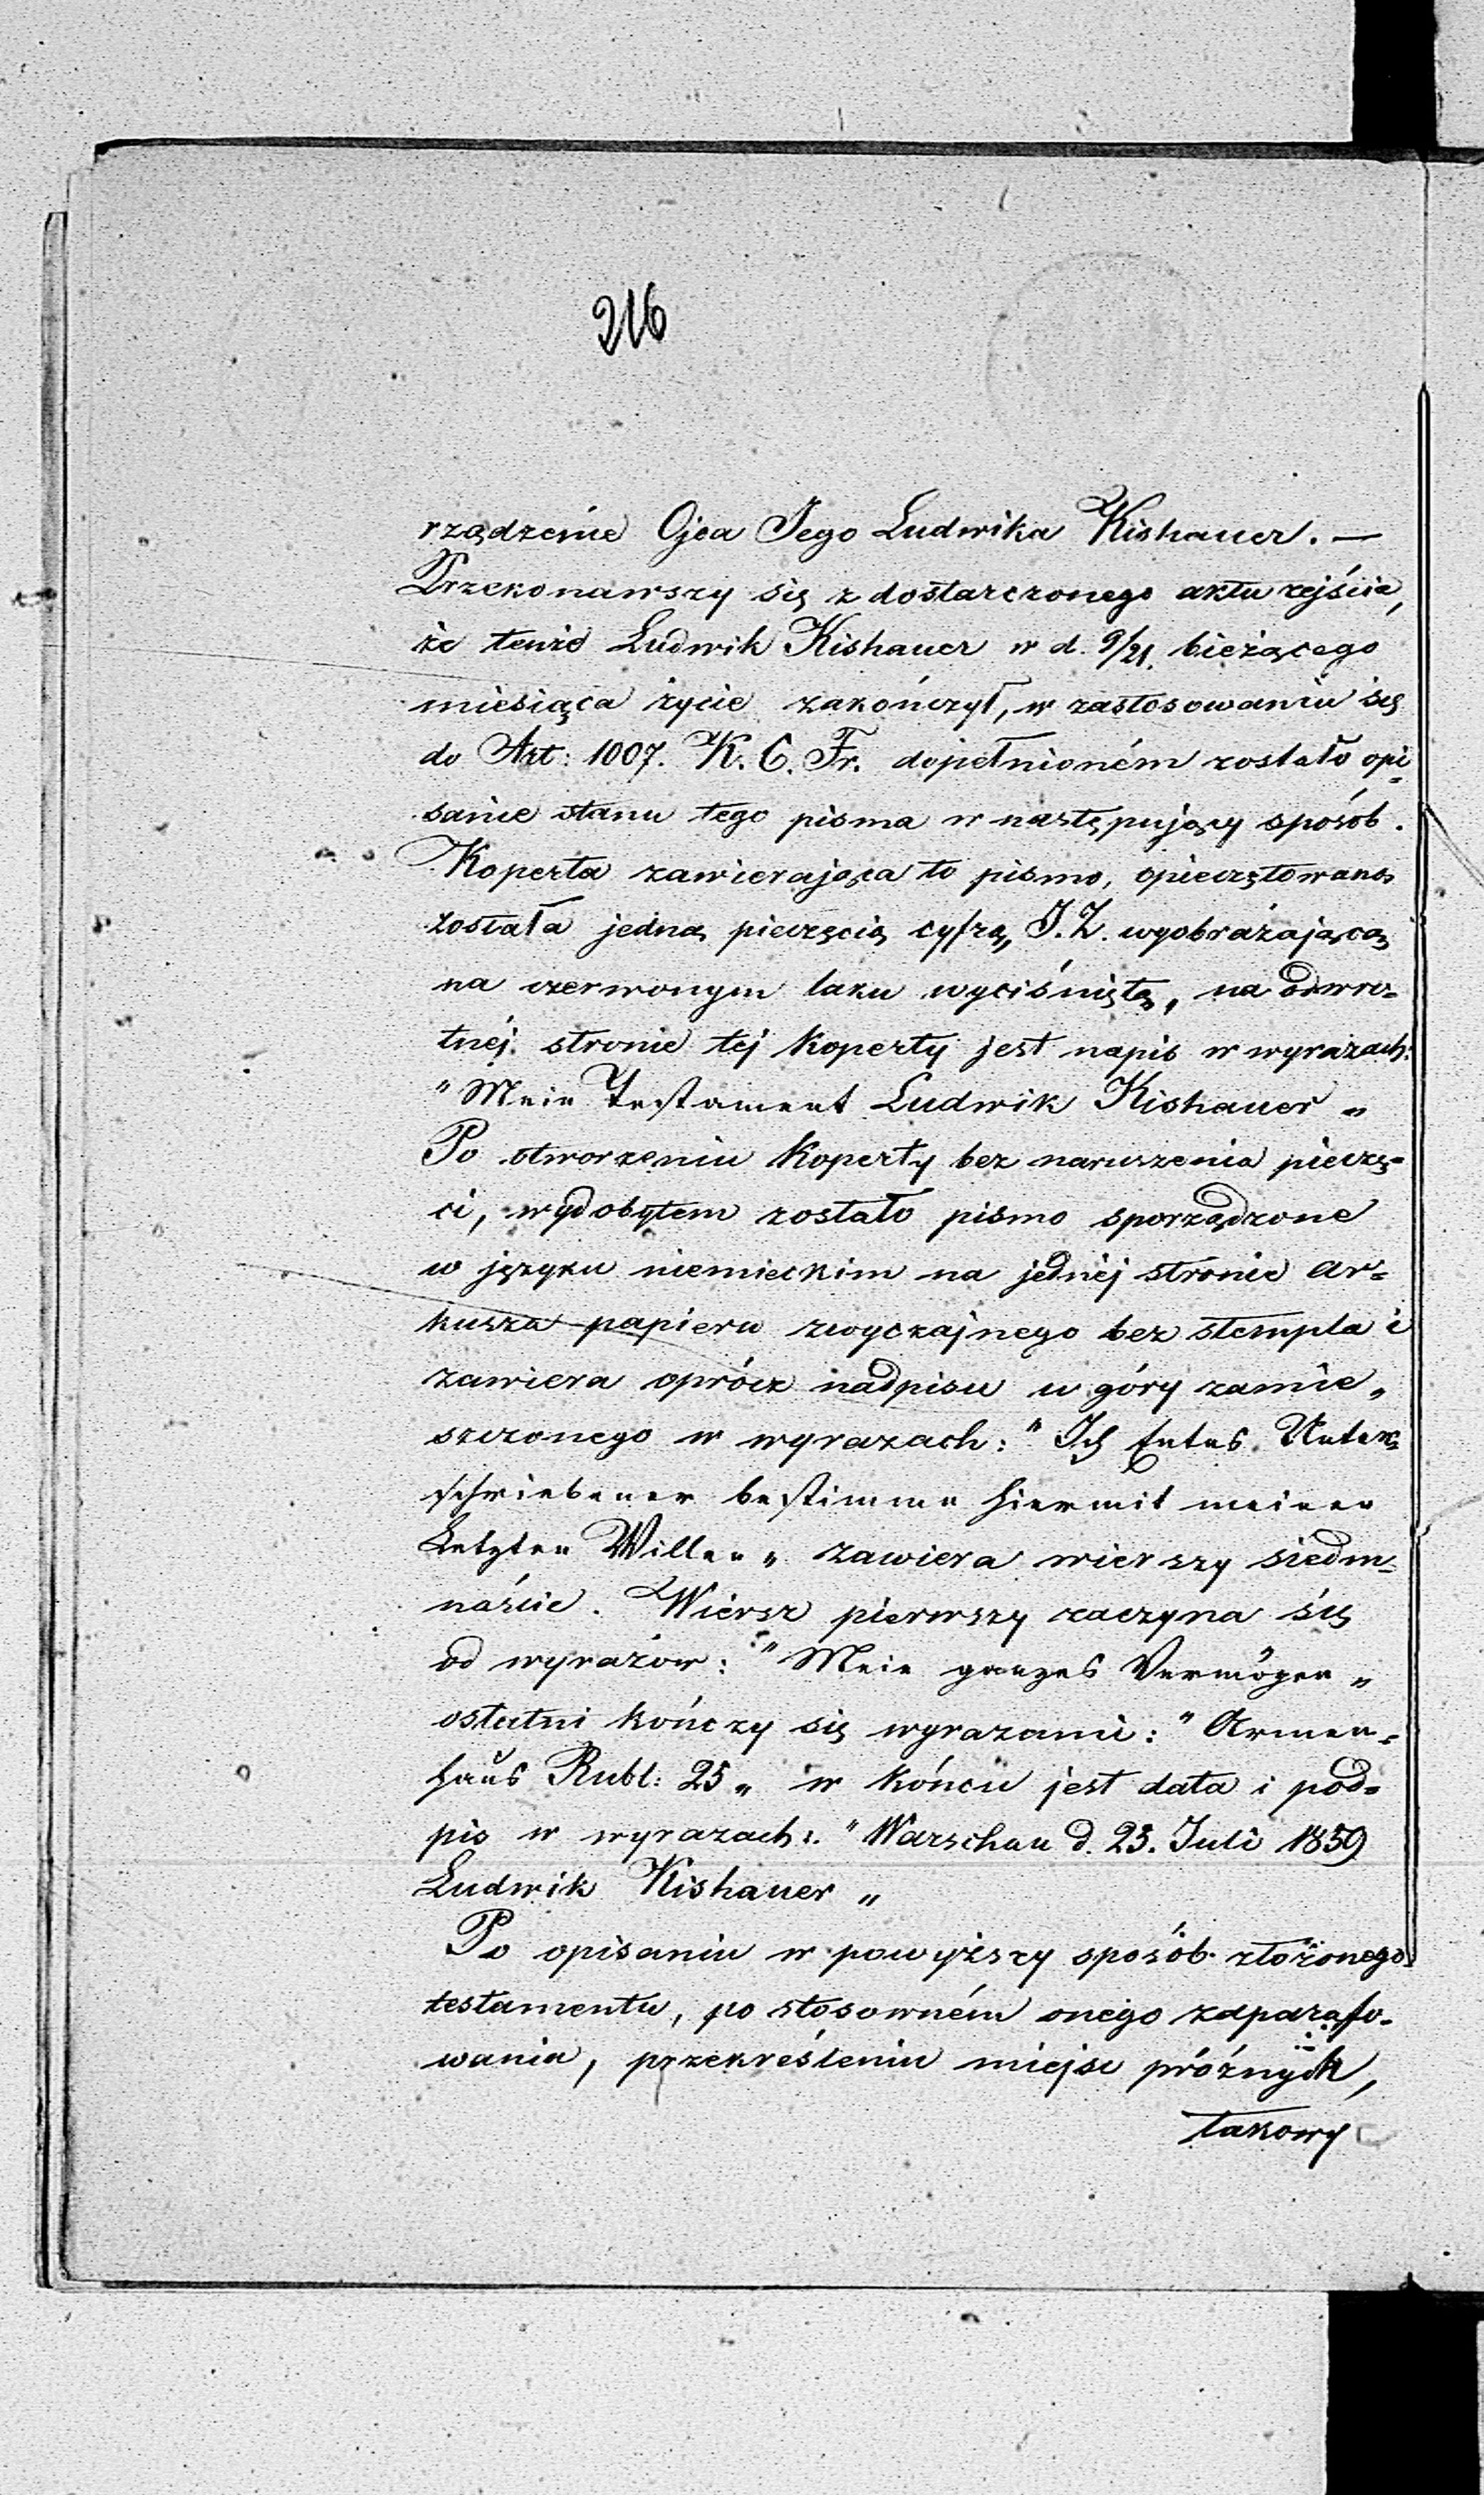 216
rządzenie Ojca Jego Ludwika Kishauer. —
Przekonawszy się z dostarczonego aktu zejścia,
że tenże Ludwik Kishauer w d. 9/21. bieżącego
miesiąca życie zakończył, w zastosowaniu się
do Art: 1007. K. C. Fr. dopełnioném zostało opi-
sanie stanu tego pisma w następujący sposób.
Koperta zawierająca to pismo, opieczętowaną
została jedną pieczęcią cyfrą, J. Z. wyobrażającą
na czerwonym laku wyciśniętą, na odwro-
tnéj stronie téj koperty jest napis w wyrazach:
"Mein Testament Ludwik Kishauer „
Po otworzeniu koperty bez naruszenia pieczę-
ci, wydobytem zostało pismo sporządzone
w języku niemieckim na jednéj stronie ar-
kusza papieru zwyczajnego bez stempla i
zawiera oprócz nadpisu u góry zamie„
szczonego w wyrazach: "Ich Unter-
schriebener bestimme hiermit meinen
Letzten Willen „ zawiera wierszy siedm-
naście. Wiersz pierwszy zaczyna się
od wyrazów: "Mein ganzes Vermögen „
ostatni kończy się wyrazami: "Armen-
haus Rubl: 25 „ w końcu jest data i pod-
pis w wyrazach: "Warschau d. 25. Juli 1859
Ludwik Kishauer „
Po opisaniu w powyższy sposób złożonego
testamentu, po stosowném onego zaparafo-
wania, przekreśleniu miejsc próżnych,
takowy